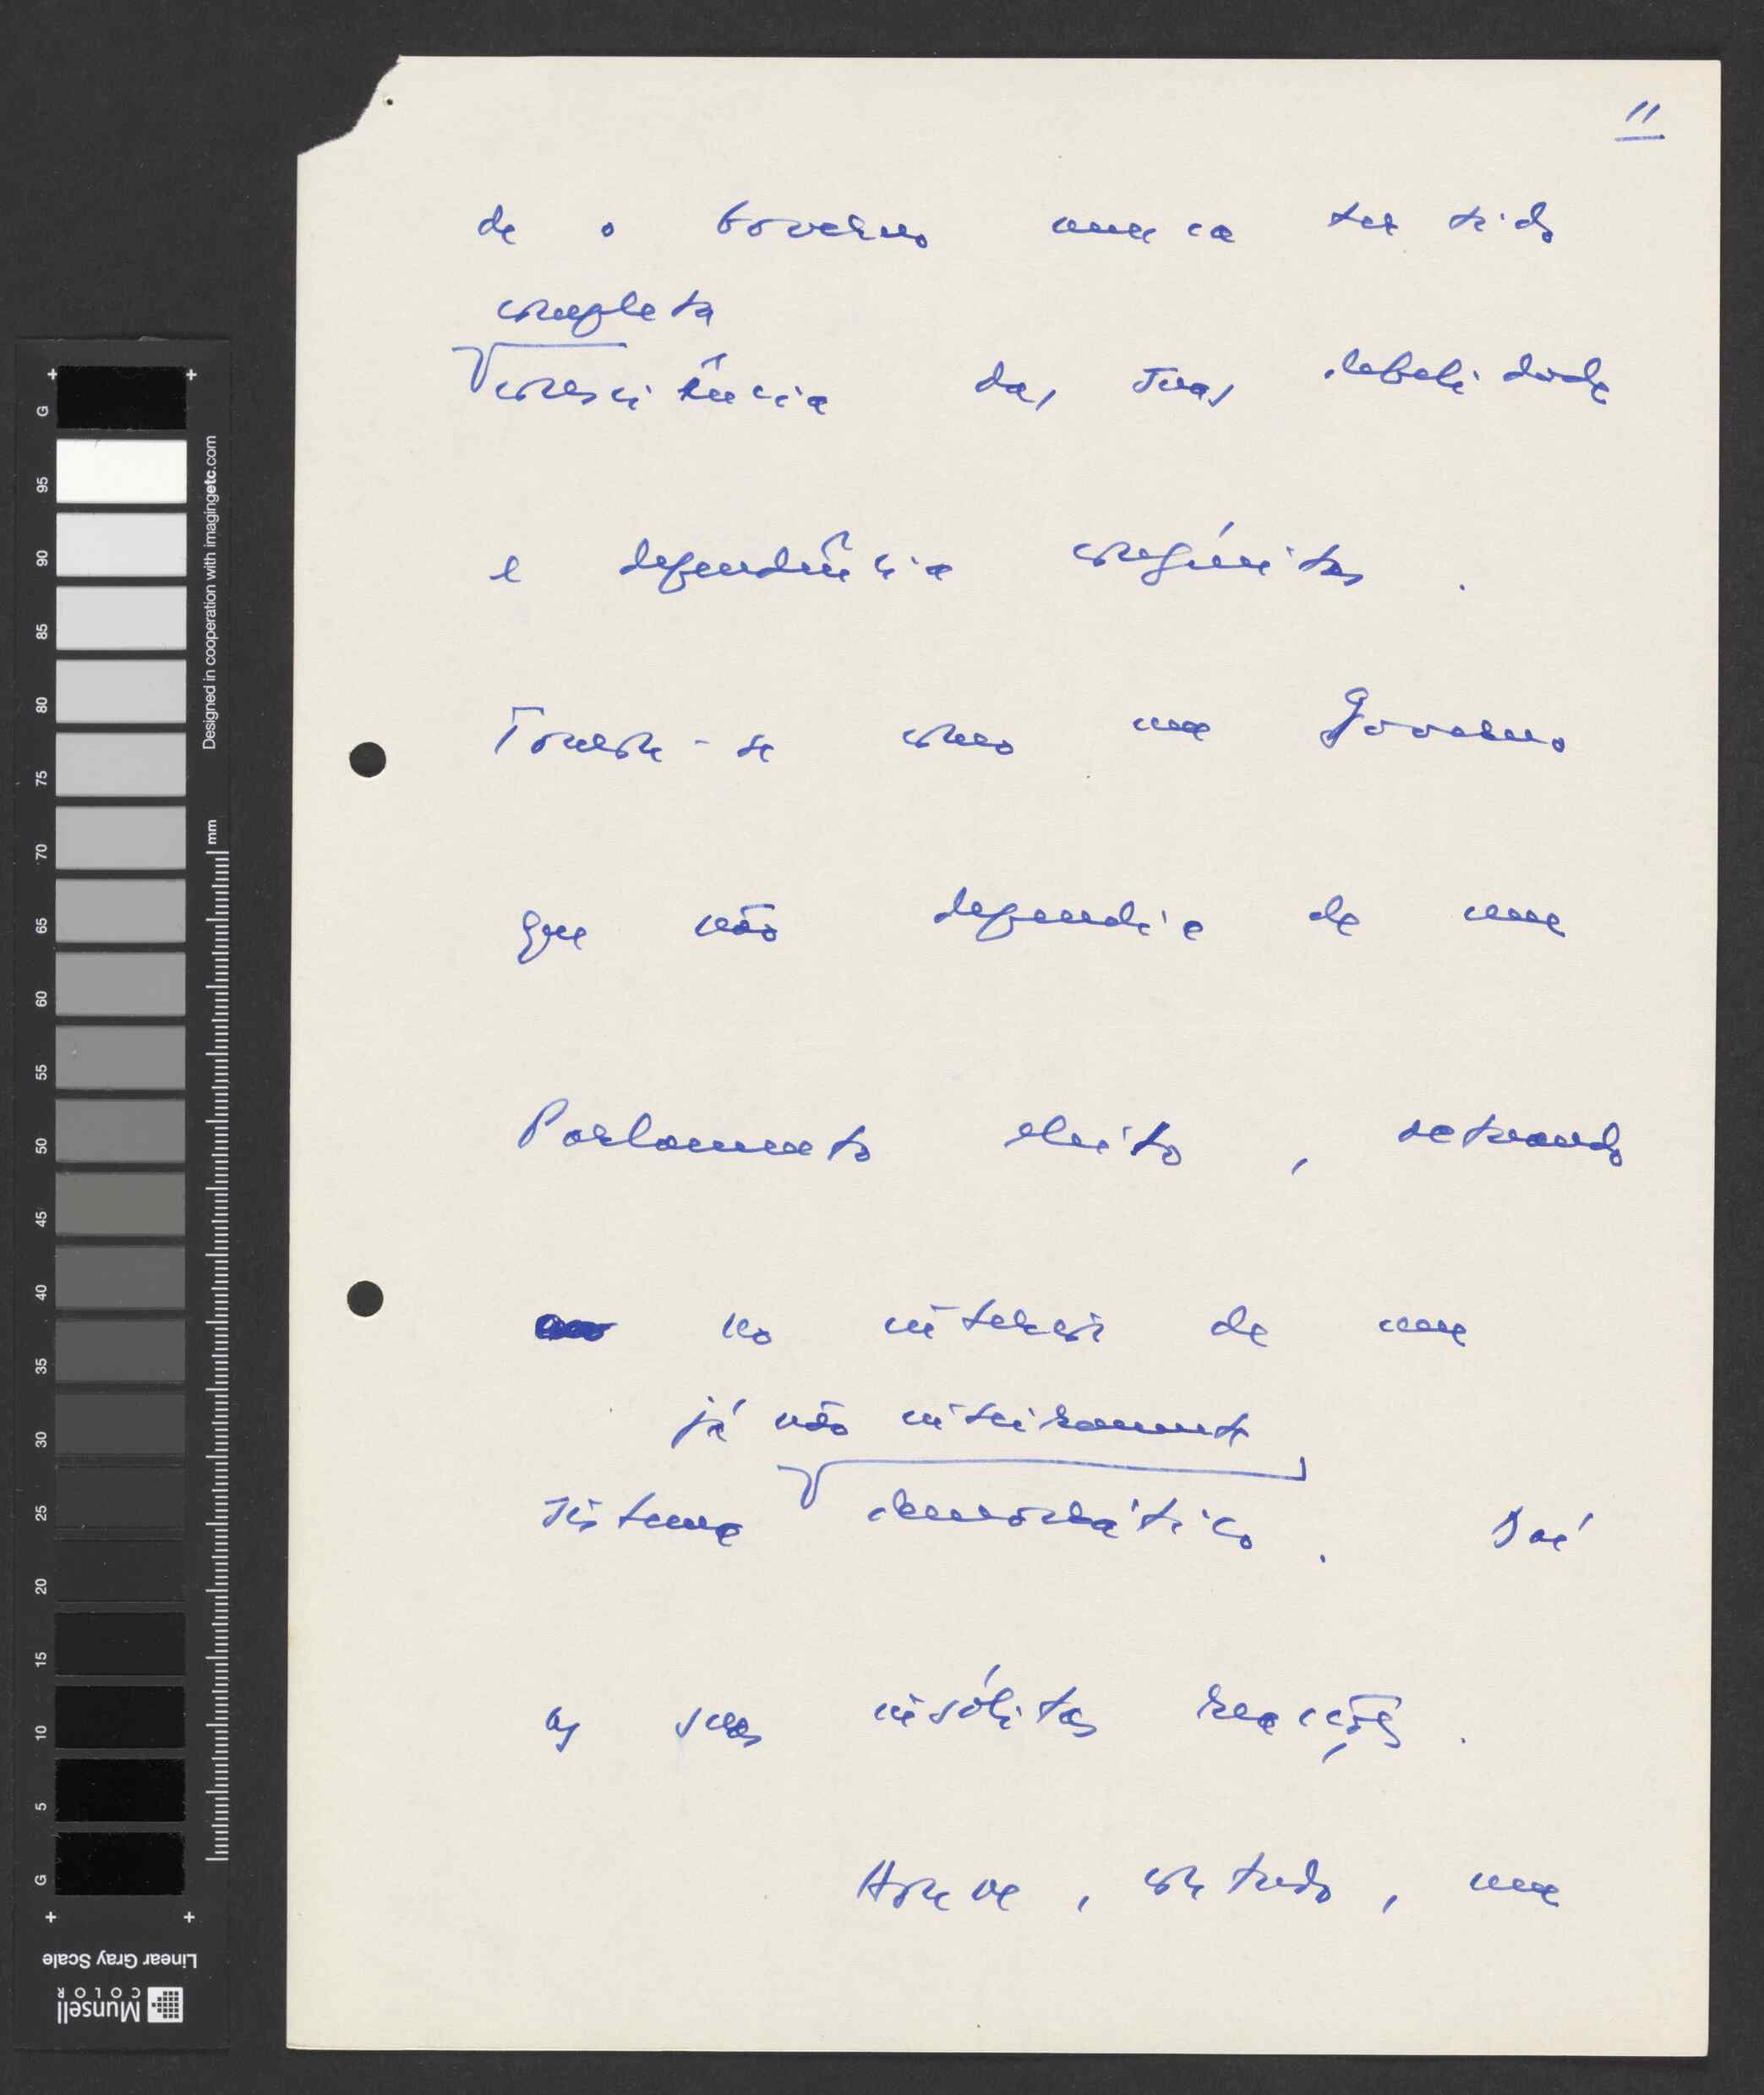 11
de o Governo nunca ter tido
completa
consciência das suas debilidade
e dependência congénitas.
Tomou-se como um Governo
que não dependia de um
Parlamento eleito, actuando
no interior de um
já não inteiramente
sistema democrático. Daí
as suas insólitas reacções.
Houve, contudo, uma
G
95
90
85
80
75
70
65
60
55
50
45
40
35
30
25
20
15
10
5
G
Designed in cooperation with imagingetc.com
mm
Linear Gray Scale
Munsell
COLOR